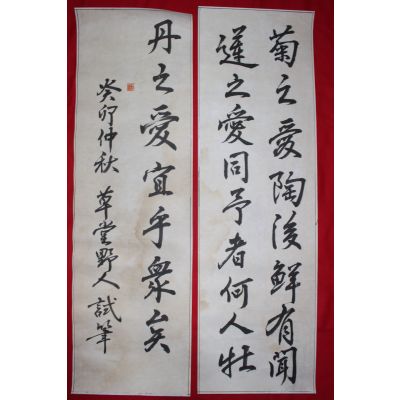 菊之愛陶後鮮有聞
蓮之愛同予者何人牡
丹之愛宜乎衆矣
癸卯仲秋 草堂野人試筆